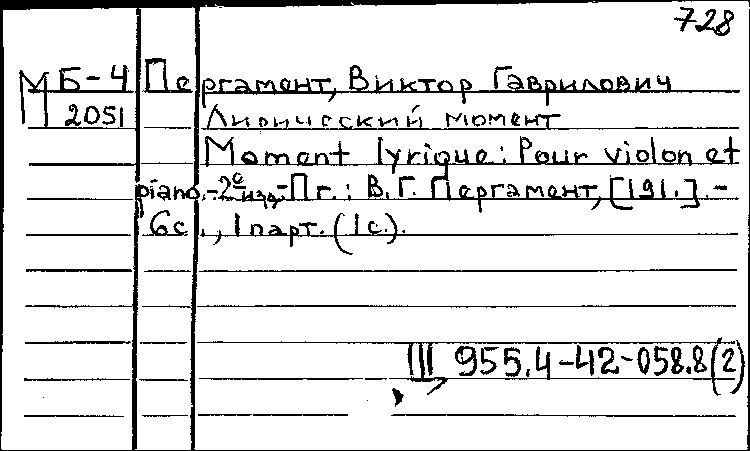 728
М Б-4 Пергамент, Виктор Гаврилович
2051 Лирический момент
Moment lyrique: Pour violon et
piano.-2е изд.-Пг.: В.Г. Пергамент, [191.].-
6с., 1 парт. (1с.).
III 955.4-42-058.8(2)